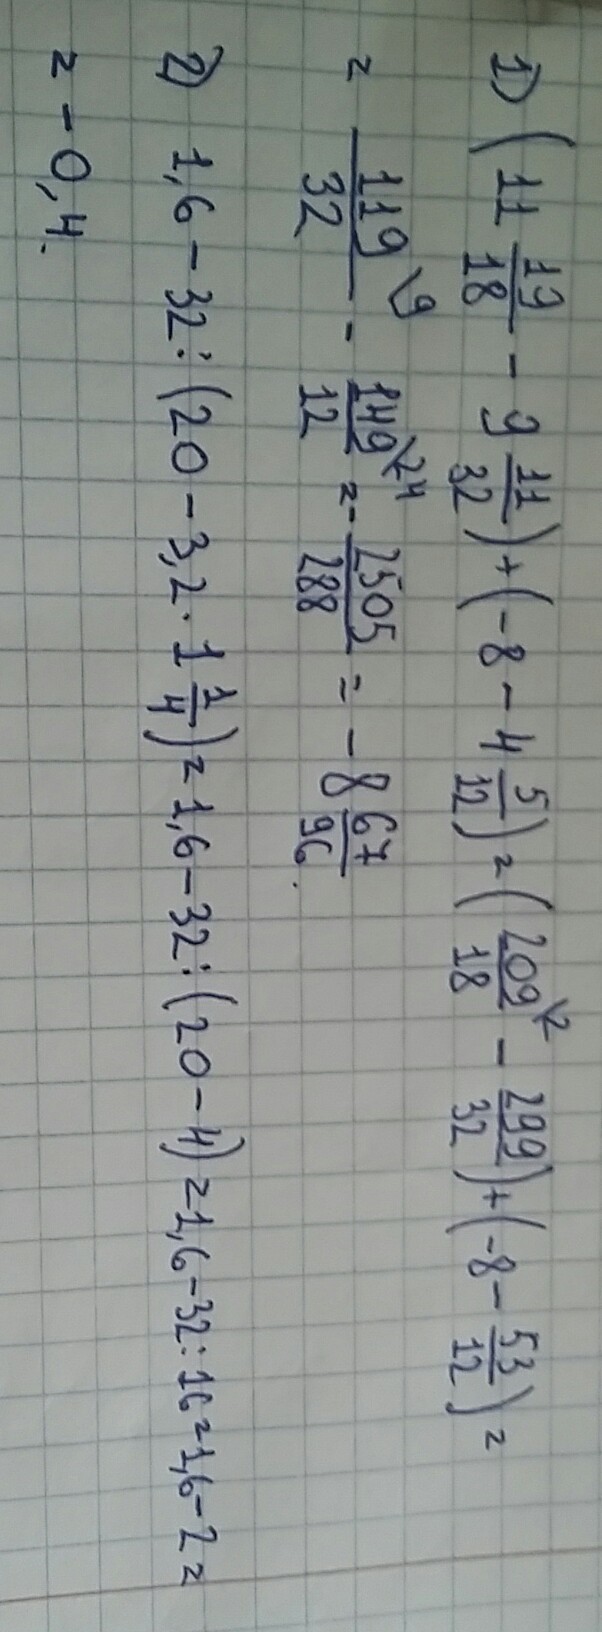 1) (11 19/18 - 9 11/32) + (-8 - 4 5/12) = (209/18 \2 - 299/32) + (-8 - 53/12) =
= 119/32 \9 - 149/12 \24 = - 2505/288 = - 8 67/96.
2) 1,6 - 32 : (20 - 3,2 · 1 1/4) = 1,6 - 32 : (20 - 4) = 1,6 - 32 : 16 = 1,6 - 2 =
= - 0,4.